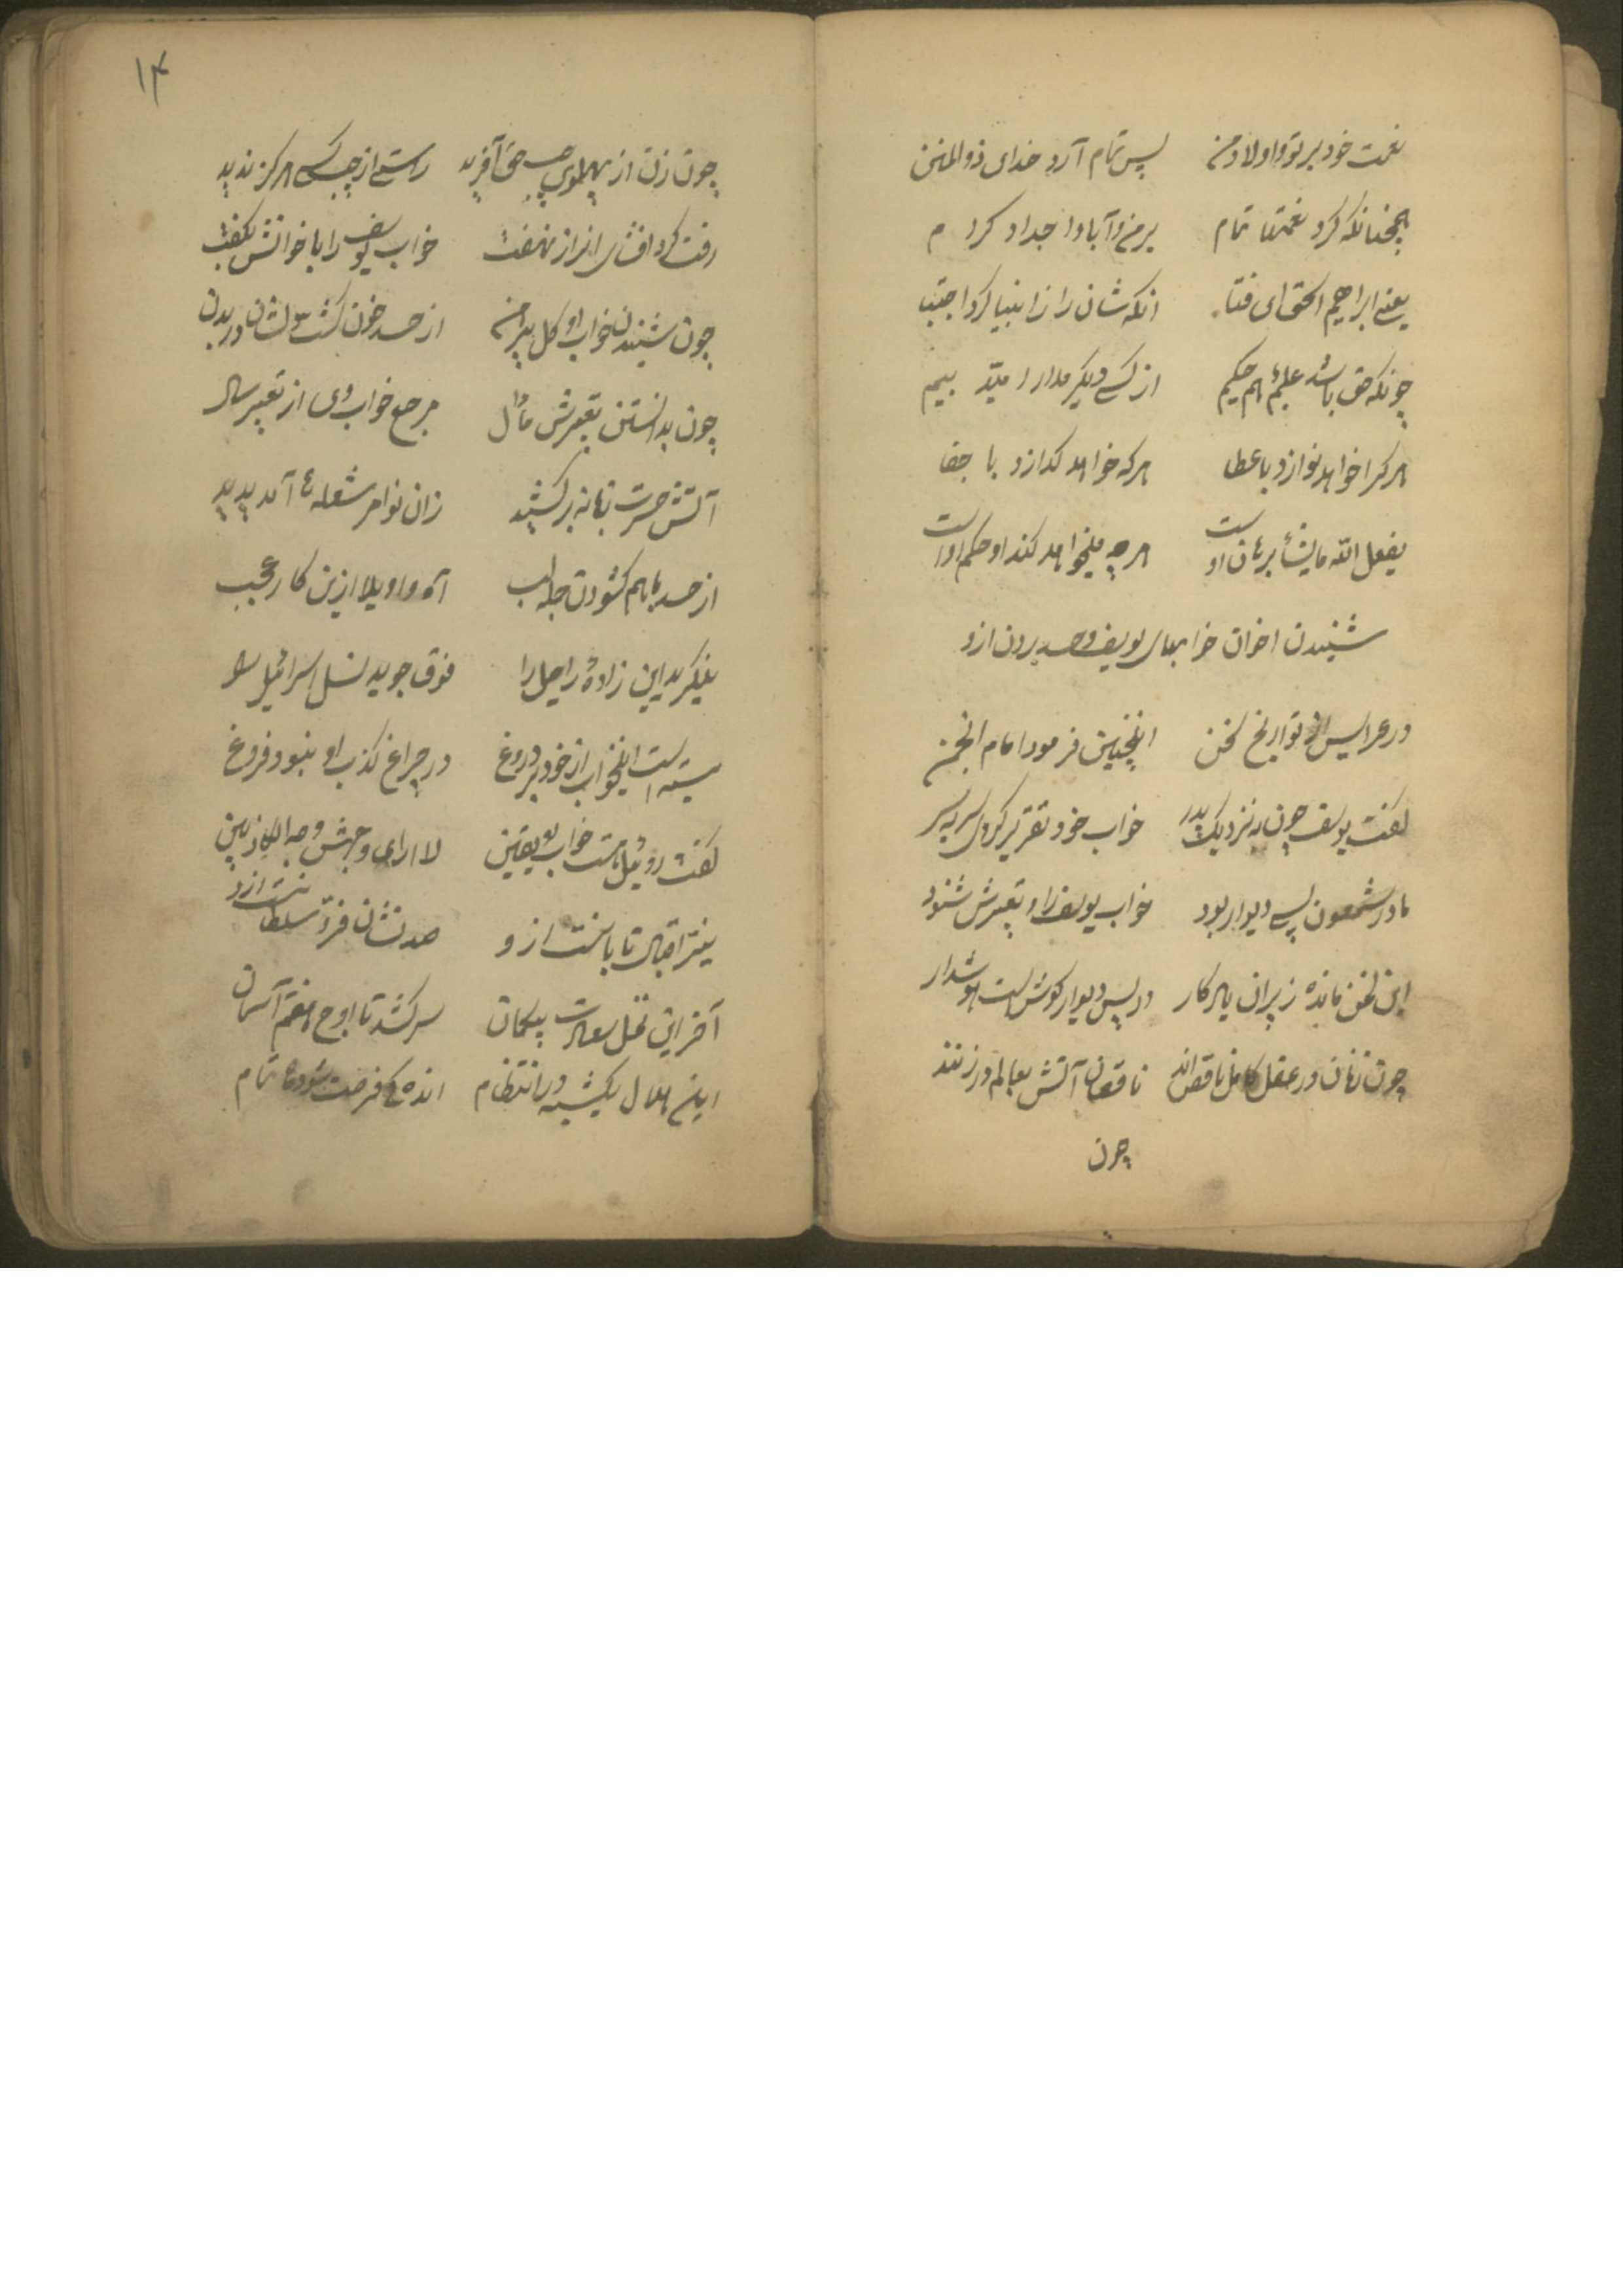 نعمت خود بر تو و اولاد من پس تمام آرد خدای ذو المنن
همچنانکه کرد نعمتها تمام بر من و آبا و اجداد کرام
یعنی ابراهیم اسحق ای فتا انکه شان را ز انبیا کرد اجتبا
چونکه حق باشد علیم هم حکیم از کسی دیگر مدار امید بیم
هر کرا خواهد نوازد با عطا هر که خواهد گدازد با جفا
یفعل الله مایشأ برهان اوست هر چه میخواهد کند او حکم اوست
شنیدن اخوان خوابهای یوسف و حسد بردن ازو
در عرایس از تواریخ کهن اینچنین فرمود امام انجمن
گفت یوسف چون به نزدیک پدر خواب خود تقریر کردی سر بسر
مادر شمعون پس دیوار بود خواب یوسف را و تعبیرش شنود
این سخن مانده ز پیران یادگار در پس دیوار گوش است هوشدار
چون زنان در عقل کامل ناقص اند ناقصان آتش بعالم در زنند
چون
۱۴
چون زن از پهلوی چپ حق آفرید راستی از چپ کسی هرگز ندید
رفت کرد افشای انراز نهفت خواب یوسف را باخوانش بگفت
چون شنیدن خواب او گل پیرهن از حسد خون گشت دلشان در بدن
چون بدانستن تعبیرش مآل مرجع خواب وی از تعبیر سال
آتش حسرت زبانه برکشید زان نوامر شعله ها آمد پدید
از حسد با هم گشودن جمله لب آه واویلا ازین کار عجب
بنگرید این زادهٔ راحیل را فوق جوید نسل اسرائیل را
بسته است اینخواب از خود بر دروغ در چراغ کذب او نبود فروغ
گفت روئیل هست خواب او یقین لا اری وجهش وجه الکاذبین
نیز اقبال تابانست ازو صد نشان فرّ سلطانست ازو
آخر این نخل سعادت بیگمان سر کشد تا اوج هفتم آسمان
این هلال یکشبه در انتظام اندکی فرصت شود ماه تمام